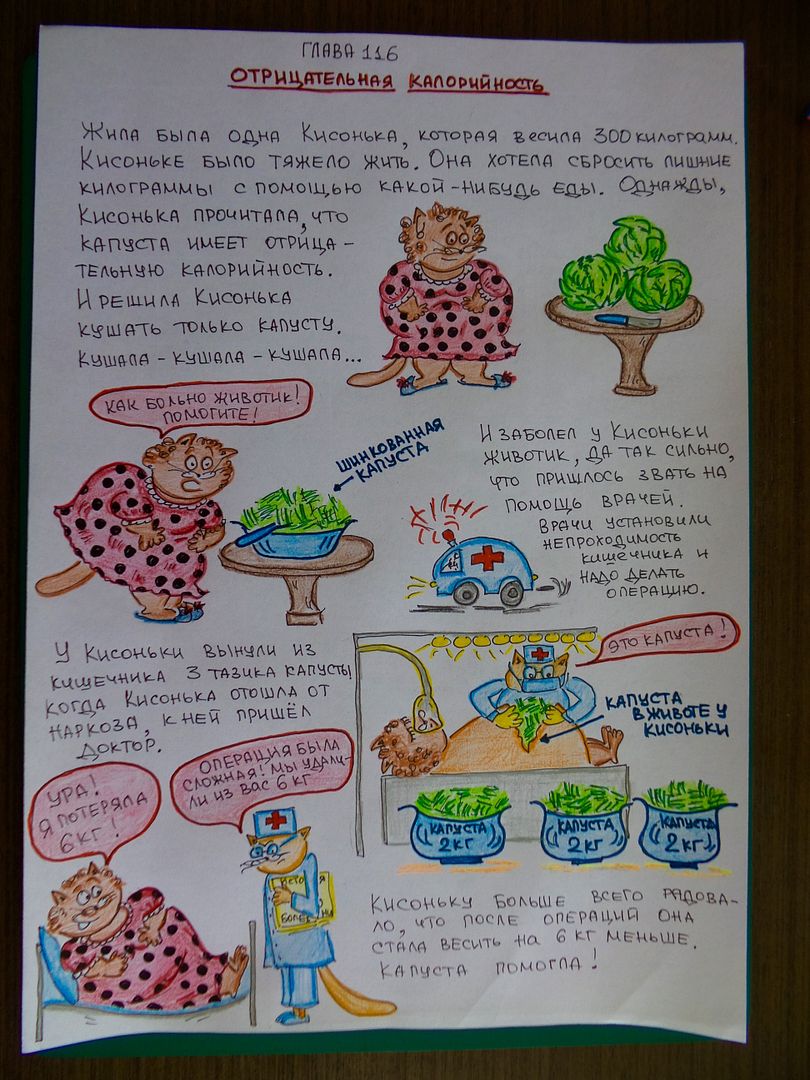 ГЛАВА 116
ОТРИЦАТЕЛЬНАЯ КАЛОРИЙНОСТЬ
ЖИЛА БЫЛА ОДНА КИСОНЬКА, КОТОРАЯ ВЕСИЛА 300 КИЛОГРАММ.
КИСОНЬКЕ БЫЛО ТЯЖЕЛО ЖИТЬ. ОНА ХОТЕЛА СБРОСИТЬ ЛИШНИЕ
КИЛОГРАММЫ С ПОМОЩЬЮ КАКОЙ-НИБУДЬ ЕДЫ. ОДНАЖДЫ,
КИСОНЬКА ПРОЧИТАЛА, ЧТО
КАПУСТА ИМЕЕТ ОТРИЦА-
ТЕЛЬНУЮ КАЛОРИЙНОСТЬ.
И РЕШИЛА КИСОНЬКА
КУШАТЬ ТОЛЬКО КАПУСТУ.
КУШАЛА - КУШАЛА - КУШАЛА...
КАК БОЛЬНО ЖИВОТИК!
ПОМОГИТЕ!
ШИНКОВАННАЯ
КАПУСТА
И ЗАБОЛЕЛ У КИСОНЬКИ
ЖИВОТИК, ДА ТАК СИЛЬНО,
ЧТО ПРИШЛОСЬ ЗВАТЬ НА
ПОМОЩЬ ВРАЧЕЙ.
ВРАЧИ УСТАНОВИЛИ
НЕПРОХОДИМОСТЬ
КИШЕЧНИКА И
НАДО ДЕЛАТЬ
ОПЕРАЦИЮ.
У КИСОНЬКИ ВЫНУЛИ ИЗ
КИШЕЧНИКА 3 ТАЗИКА КАПУСТЫ
КОГДА КИСОНЬКА ОТОШЛА ОТ
НАРКОЗА, К НЕЙ ПРИШЁЛ
ДОКТОР.
ЭТО КАПУСТА!
КАПУСТА
В ЖИВОТЕ У
КИСОНЬКИ
КАПУСТА
2 КГ
КАПУСТА
2 КГ
КАПУСТА
2 КГ
УРА!
Я ПОТЕРЯЛА
6 КГ!
ОПЕРАЦИЯ БЫЛА
СЛОЖНАЯ! МЫ УДАЛИ-
ЛИ ИЗ ВАС 6 КГ
КИСОНЬКУ БОЛЬШЕ ВСЕГО РАДОВА-
ЛО, ЧТО ПОСЛЕ ОПЕРАЦИИ ОНА
СТАЛА ВЕСИТЬ НА 6 КГ МЕНЬШЕ.
КАПУСТА ПОМОГЛА!